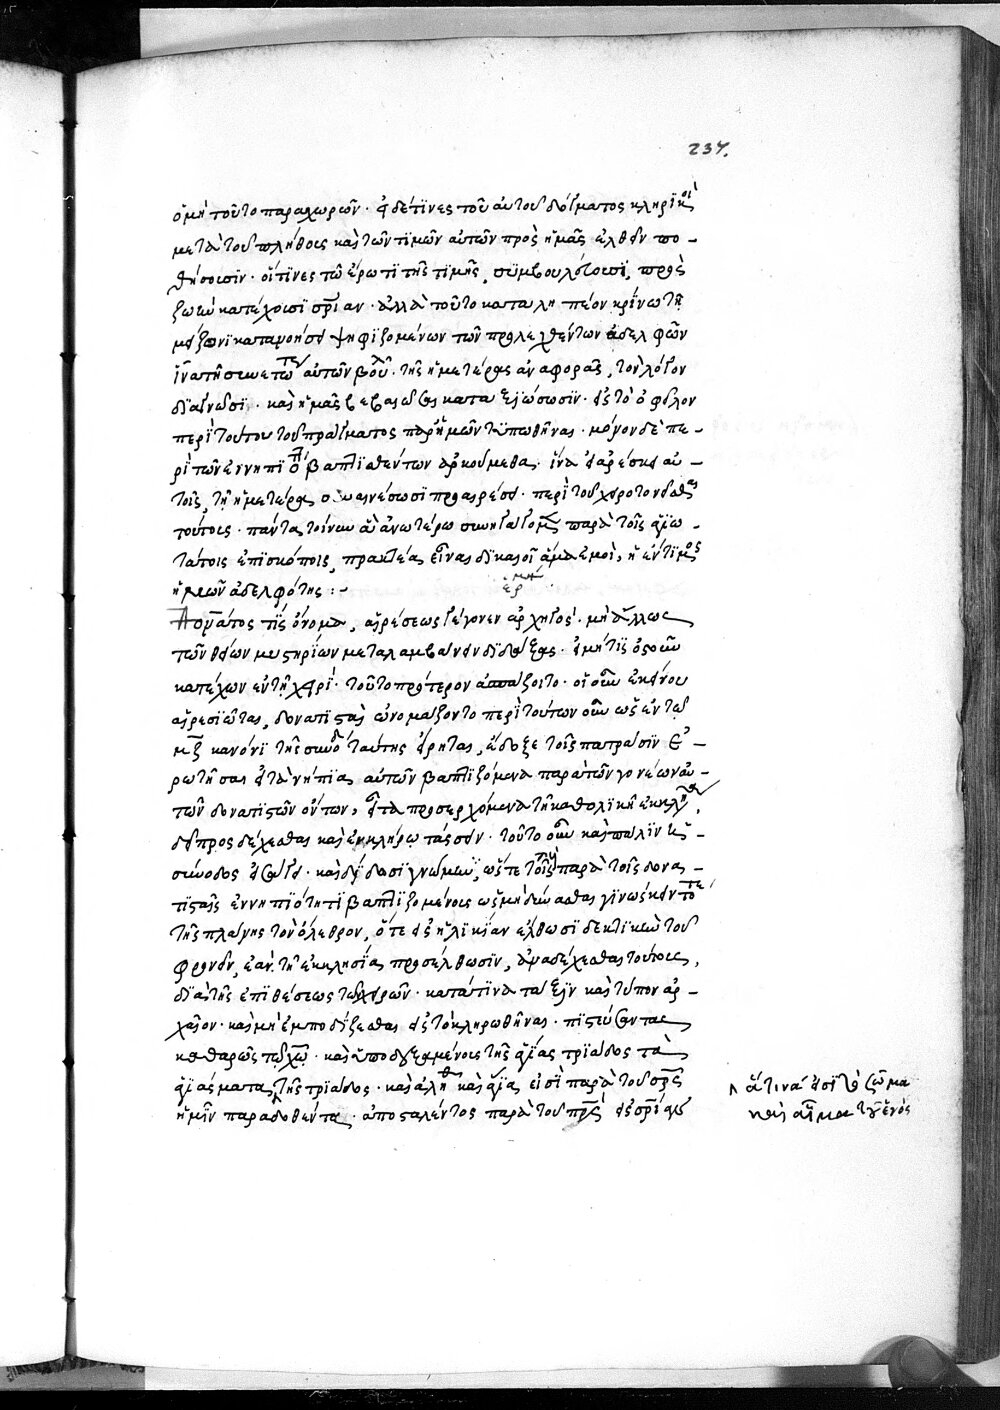 237.
ὁ μὴ τοῦτο παραχωρῶν · εἰ δέ τινες τοῦ αὐτοῦ δόγματος κληρικοὶ
μετὰ τοῦ πλήθους καὶ τῶν τιμῶν αὐτῶν πρὸς ἡμᾶς ἐλθεῖν πο-
θήσουσιν · οἵτινες τῷ ἔρωτι τῆς τιμῆς, συμβουλεύουσι, πρὸς
ζωὴν κατέχουσι σρίαν · ἀλλὰ τοῦτο καταλη πτέον κρίνω τῇ
μείζονι κατανοήσει ψηφιζομένων τῶν προλεχθέντων ἀδελφῶν
ἵνα τῇ συνετω αὐτῶν βουλ · τῆς ἡμετέρας ἀναφορᾶς, τὸν λόγον
διαγνῶσι · καὶ ἡμᾶς βεβαιῶσαι καταξιώσωσιν · εἰς τὸ ὀφεῖλον
περὶ τούτου τοῦ πράγματος παρ' ἡμῶν τυπωθῆναι · μόνον δὲ πε-
ρὶ τῶν ἐν νηπιό βαπτισθέντων ἀρκούμεθα · ἵνα εἰ ἀρέσκει αὐ-
τοῖς, τῇ ἡμετέρα συναινέσωσι προαιρέσει · περὶ τοῦ χειροτονεῖσθαι
τούτους · πάντα τοίνυν ἃ ἀνωτέρω συνήγαγομεν παρὰ τοῖς ἁγιω-
τάτοις ἐπισκόποις, πρακτέα εἶναι δίκαιοῖ ἅμα ἐμοὶ, ἡ ἔντιμος
ἡμῶν ἀδελφότης :-
ἑρμη
Δονᾶτος τὶς ὄνομα, αἱρέσεως γέγονεν ἀρχηγός · μὴ ἄλλως
τῶν θείων μυστηρίων μεταλαμβάνειν διδάξας · εἰ μή τις ὀστοῦν
κατέχων ἐν τῇ χειρί · τοῦτο πρότερον ἀσπάζοιτο · οἱ οὖν ἐκείνου
αἱρεσιῶται, δονατισταὶ ὠνομάζοντο περὶ τούτων οὖν ὡς ἐν τῷ
μζ κανόνι τῆς συνόδ ταύτης εἴρηται, ἔδοξε τοῖς πατράσιν ἐ-
ρωτῆσαι εἰ τὰ νήπια αὐτῶν βαπτιζόμενα παρὰ τῶν γονέων αὐ-
τῶν δονατιστῶν ὄντων, εἶτα προσερχόμενα τῇ καθολικῇ ἐκκλη,
δεῖ προσδέχεσθαι καὶ ἐν κλήρω τάσσειν · τοῦτο οὖν καὶ πάλιν ἡ
σύνοδος εἰσάγει · καὶ δίδωσι γνώμην, ὥστε τοῖς παρὰ τοῖς δονα-
τισταῖς ἐν νηπιότητι βαπτιζομένοις ὡς μὴ δύνασθαι γινώσκειν τότε
τῆς πλάνης τὸν ὄλεθρον, ὅτε εἰς ἡλικίαν ἔλθωσι δεκτικὴν τοῦ
φρονεῖν, ἐὰν τῇ ἐκκλησίᾳ προσέλθωσιν, ἀναδέχεσθαι τούτους,
διὰ τῆς ἐπιθέσεως τῶν χειρῶν · κατά τινα τάξιν καὶ τύπον ἀρ-
χαῖον · καὶ μὴ ἐμποδίζεσθαι εἰς τὸ κληρωθῆναι · πιστεύσαντας
καθαρῶς τῷ χω · καὶ ὑποδεξαμένοις τῆς ἁγίας τριάδος τὰ
ἁγιάσματα, τῆς τριάδος · καὶ ἀληθῆ καὶ ἅγια, εἰσὶ παρὰ τοῦ σρς
ἡμῖν παραδοθέντα · ἀποσταλέντος παρὰ τοῦ πρς εἰς σρίαν
ἅτινα εἰσὶ τὸ σῶμα
καὶ αἷμα τοῦ ἑνός